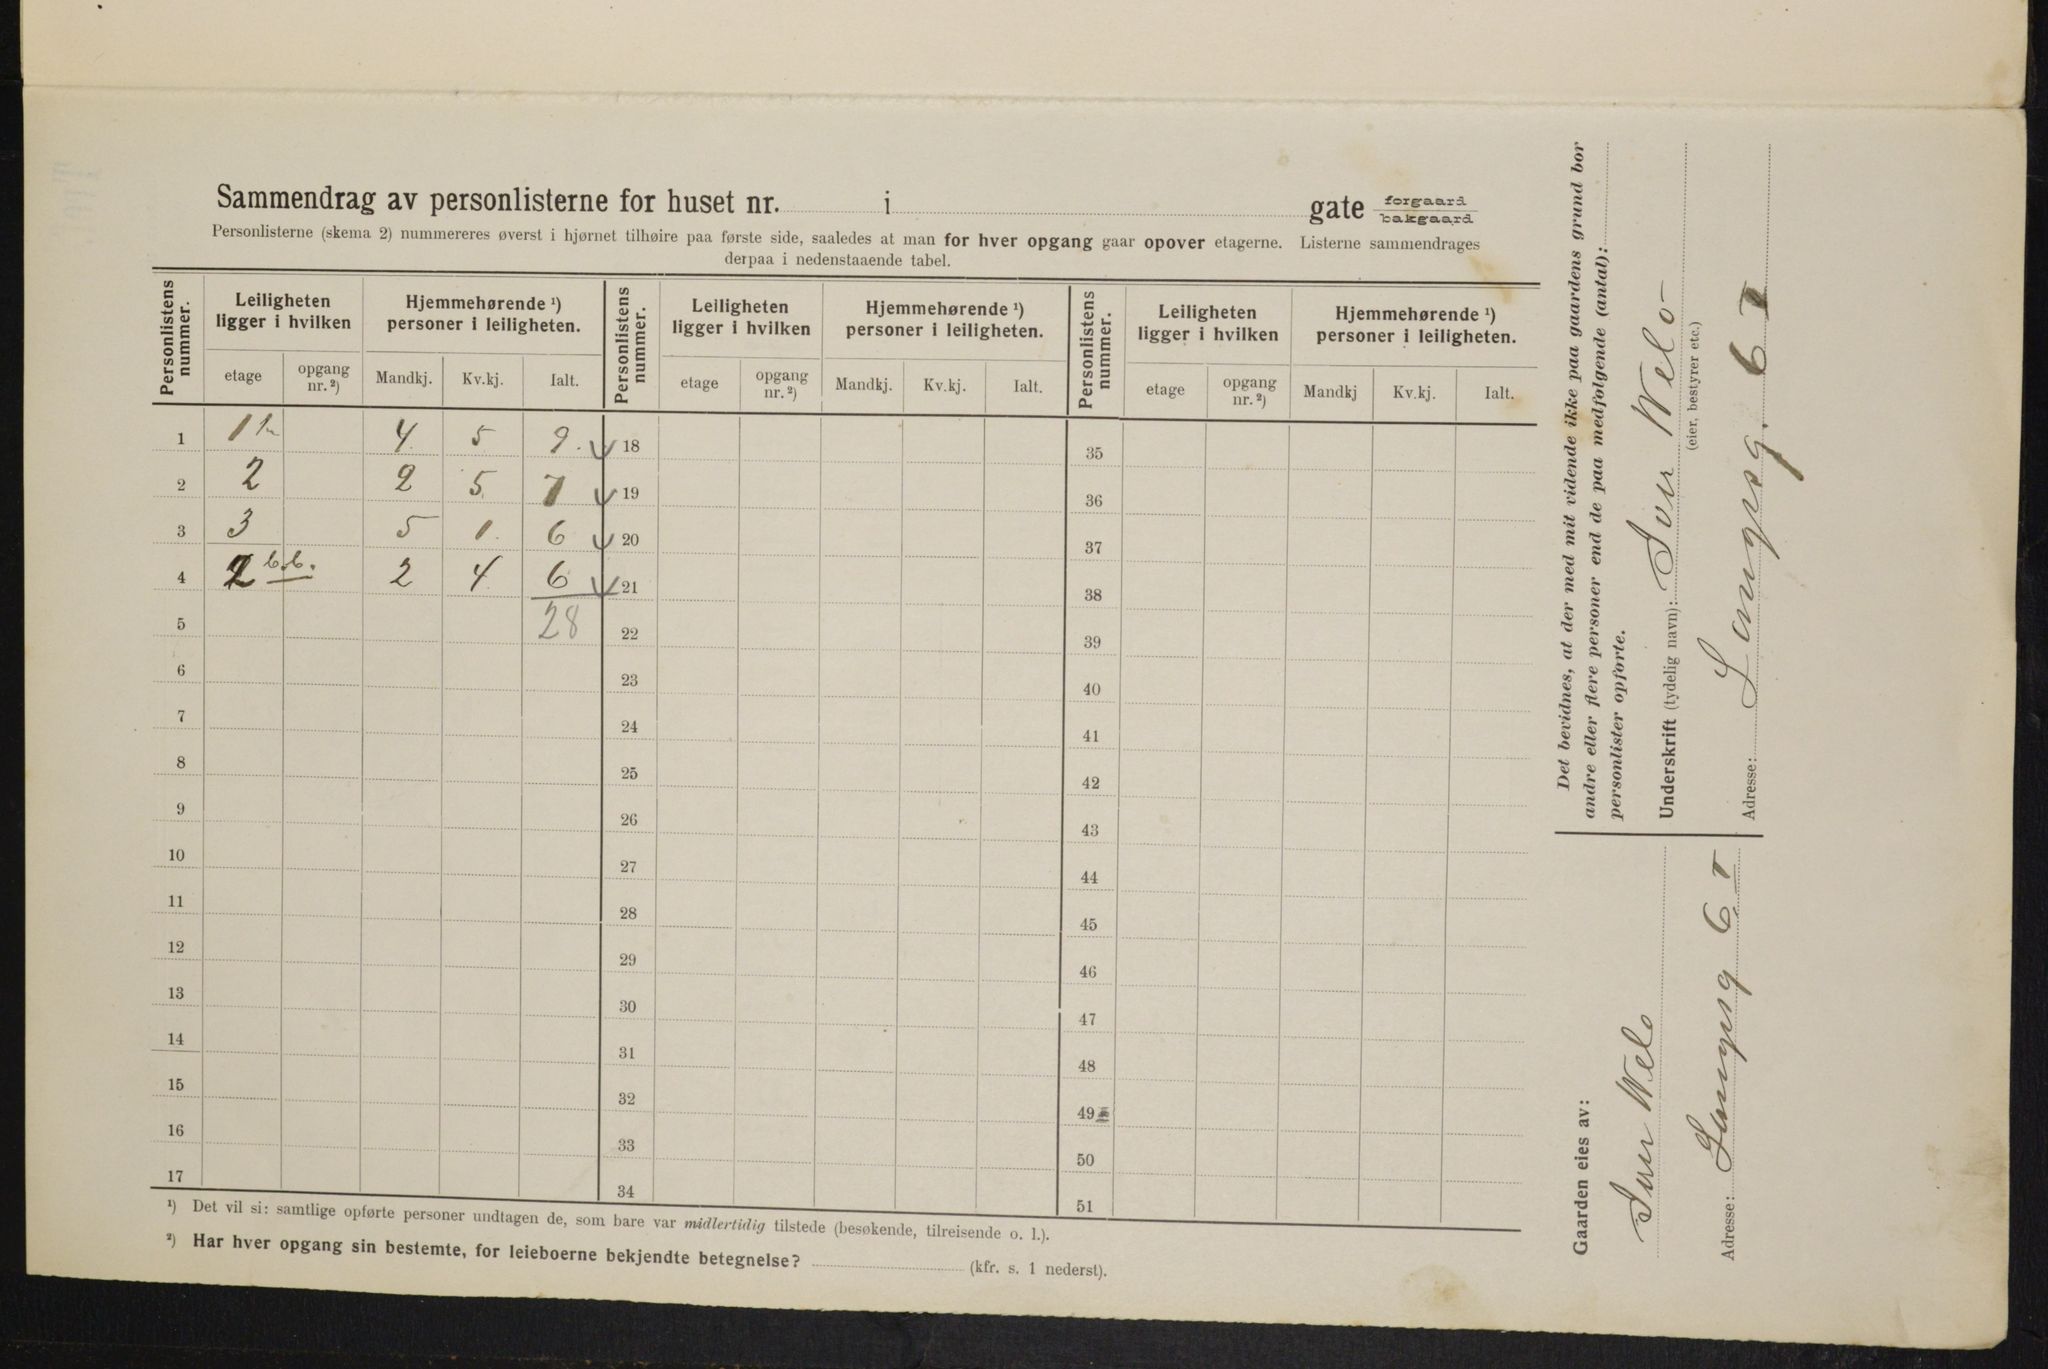 Sammendrag av personlisterne for huset nr. i gate forgaard bakgaard
Personlisterne (skema 2) nummereres øverst i hjørnet tilhøire paa første side, saaledes at man for hver opgang gaar opover etagerne. Listerne sammendrages
derpaa i nedenstaaende tabel.
Personlistens nummer. Leiligheten ligger i hvilken Hjemmehørende ¹) personer i leiligheten. Personlistens nummer. Leiligheten ligger i hvilken Hjemmehørende ¹) personer i leiligheten. Personlistens nummer. Leiligheten ligger i hvilken Hjemmehørende ¹) personer i leiligheten.
etage opgang nr. ²) Mandkj. Kv.kj. Ialt. etage opgang nr. ²) Mandkj. Kv.kj. Ialt. etage opgang nr. ²) Mandkj Kv.kj. Ialt.
1 1 4 5 9. 18 35
2 2 2 5 7 19 36
3 3 5 1 6 20 37
4 2 b.b. 2 4 6 21 38
5 28 22 39
6 23 40
7 24 41
8 25 42
9 26 43
10 27 44
11 28 45
12 29 46
13 30 47
14 31 48
15 32 49
16 33 50
17 34 51
¹) Det vil si: samtlige opførte personer undtagen de, som bare var midlertidig tilstede (besøkende, tilreisende o. l.).
²) Har hver opgang sin bestemte, for leieboerne bekjendte betegnelse? (kfr. s. 1 nederst).
Det bevidnes, at der med mit vidende ikke paa gaardens grund bor
andre eller flere personer end de paa medfølgende (antal):
personlister opførte.
Underskrift (tydelig navn): Iver Welo
(eier, bestyrer etc.)
Adresse: Langesg. 6 I
Gaarden eies av:
Iver Welo
Adresse: Langesg 6 I